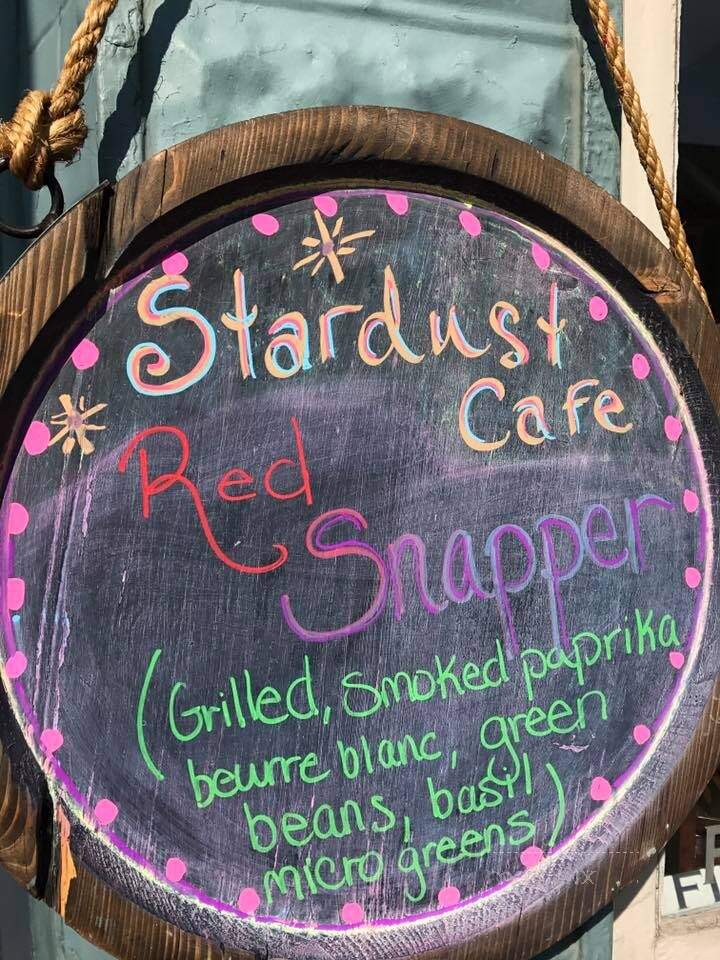 Stardust
Cafe
Red
Snapper
(Grilled, smoked paprika
beurre blanc, green
beans, basil
micro greens)